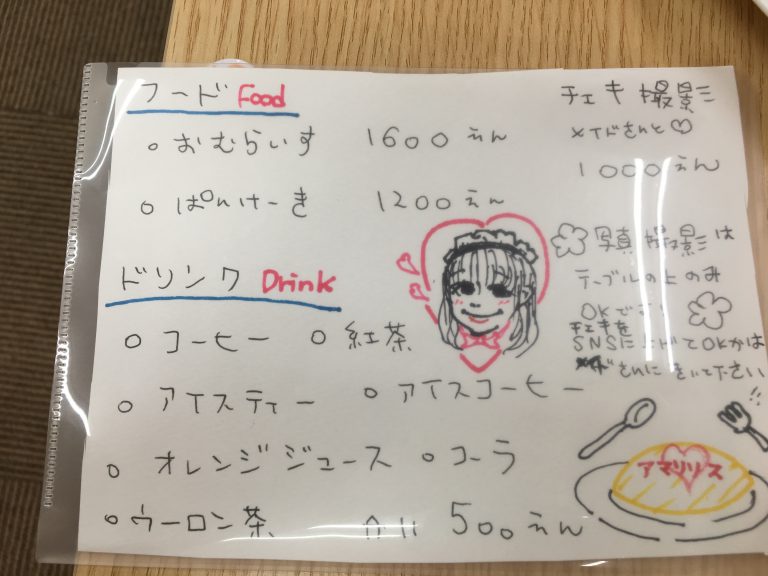 フード Food
○ おむらいす 1600えん
○ ぱんけーき 1200えん
ドリンク Drink
○ コーヒー ○ 紅茶
○ アイスティー ○ アイスコーヒー
○ オレンジジュース ○ コーラ
○ ウーロン茶
500えん
チェキ撮影
メイドさんと♡
1000えん
写真撮影は
テーブルの上のみ
OKです!
チェキを
SNSに上げてOKかは
さんにきいて下さい!!
アマリリス